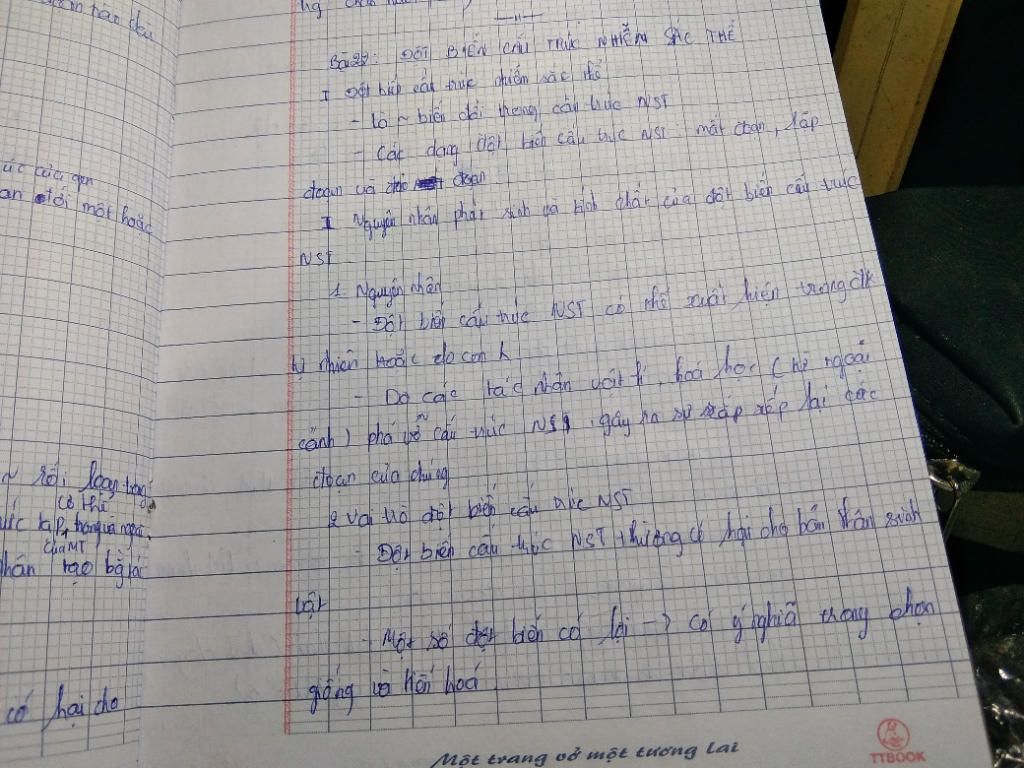 Bài 22: ĐỘT BIẾN CẤU TRÚC NHIỄM SẮC THỂ
I Đột biến cấu trúc nhiễm sắc thể
- Là ~ biến đổi trong cấu trúc NST
- Các dạng đột biến cấu trúc NST: mất đoạn, lặp
đoạn và đảo đoạn
I Nguyên nhân phát sinh và tính chất của đột biến cấu trúc
NST
1. Nguyên nhân
- Đột biến cấu trúc NST có thể xuất hiện trong đk
tự nhiên hoặc do con
- Do các tác nhân vật lí, hoá học ( từ ngoại
cảnh ) phá vỡ cấu trúc NST, gây ra sự sắp xếp lại các
đoạn của chúng
2 Vai trò đột biến cấu trúc NST
- Đột biến cấu trúc NST thường có hại cho bản thân sinh
vật
- Một số đột biến có lợi -> có ý nghĩa trong chọn
giống và tiến hoá
Một trang vở một tương lai
TTBOOK
úc của gen
an tới một hoặc
~ rối loạn trong
có thể
hân tạo
có hại cho